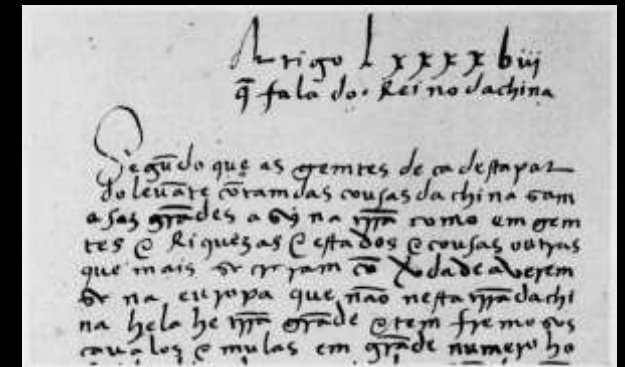 Artigo lxxxxbiii
q̃ fala do Reino dachina
Segũdo que as gemtes de ca destapar
do levãte cõtam das cousas da china sam
asas grãdes asy na trrã como em gem
tes e Riquezas e estados e cousas outras
que mais se creriam cõ vdade averem
se na europa que não nesta trrã dachi
na hela he trrã grãde e tem fremosos
cavalos e mulas em grãde numero ho